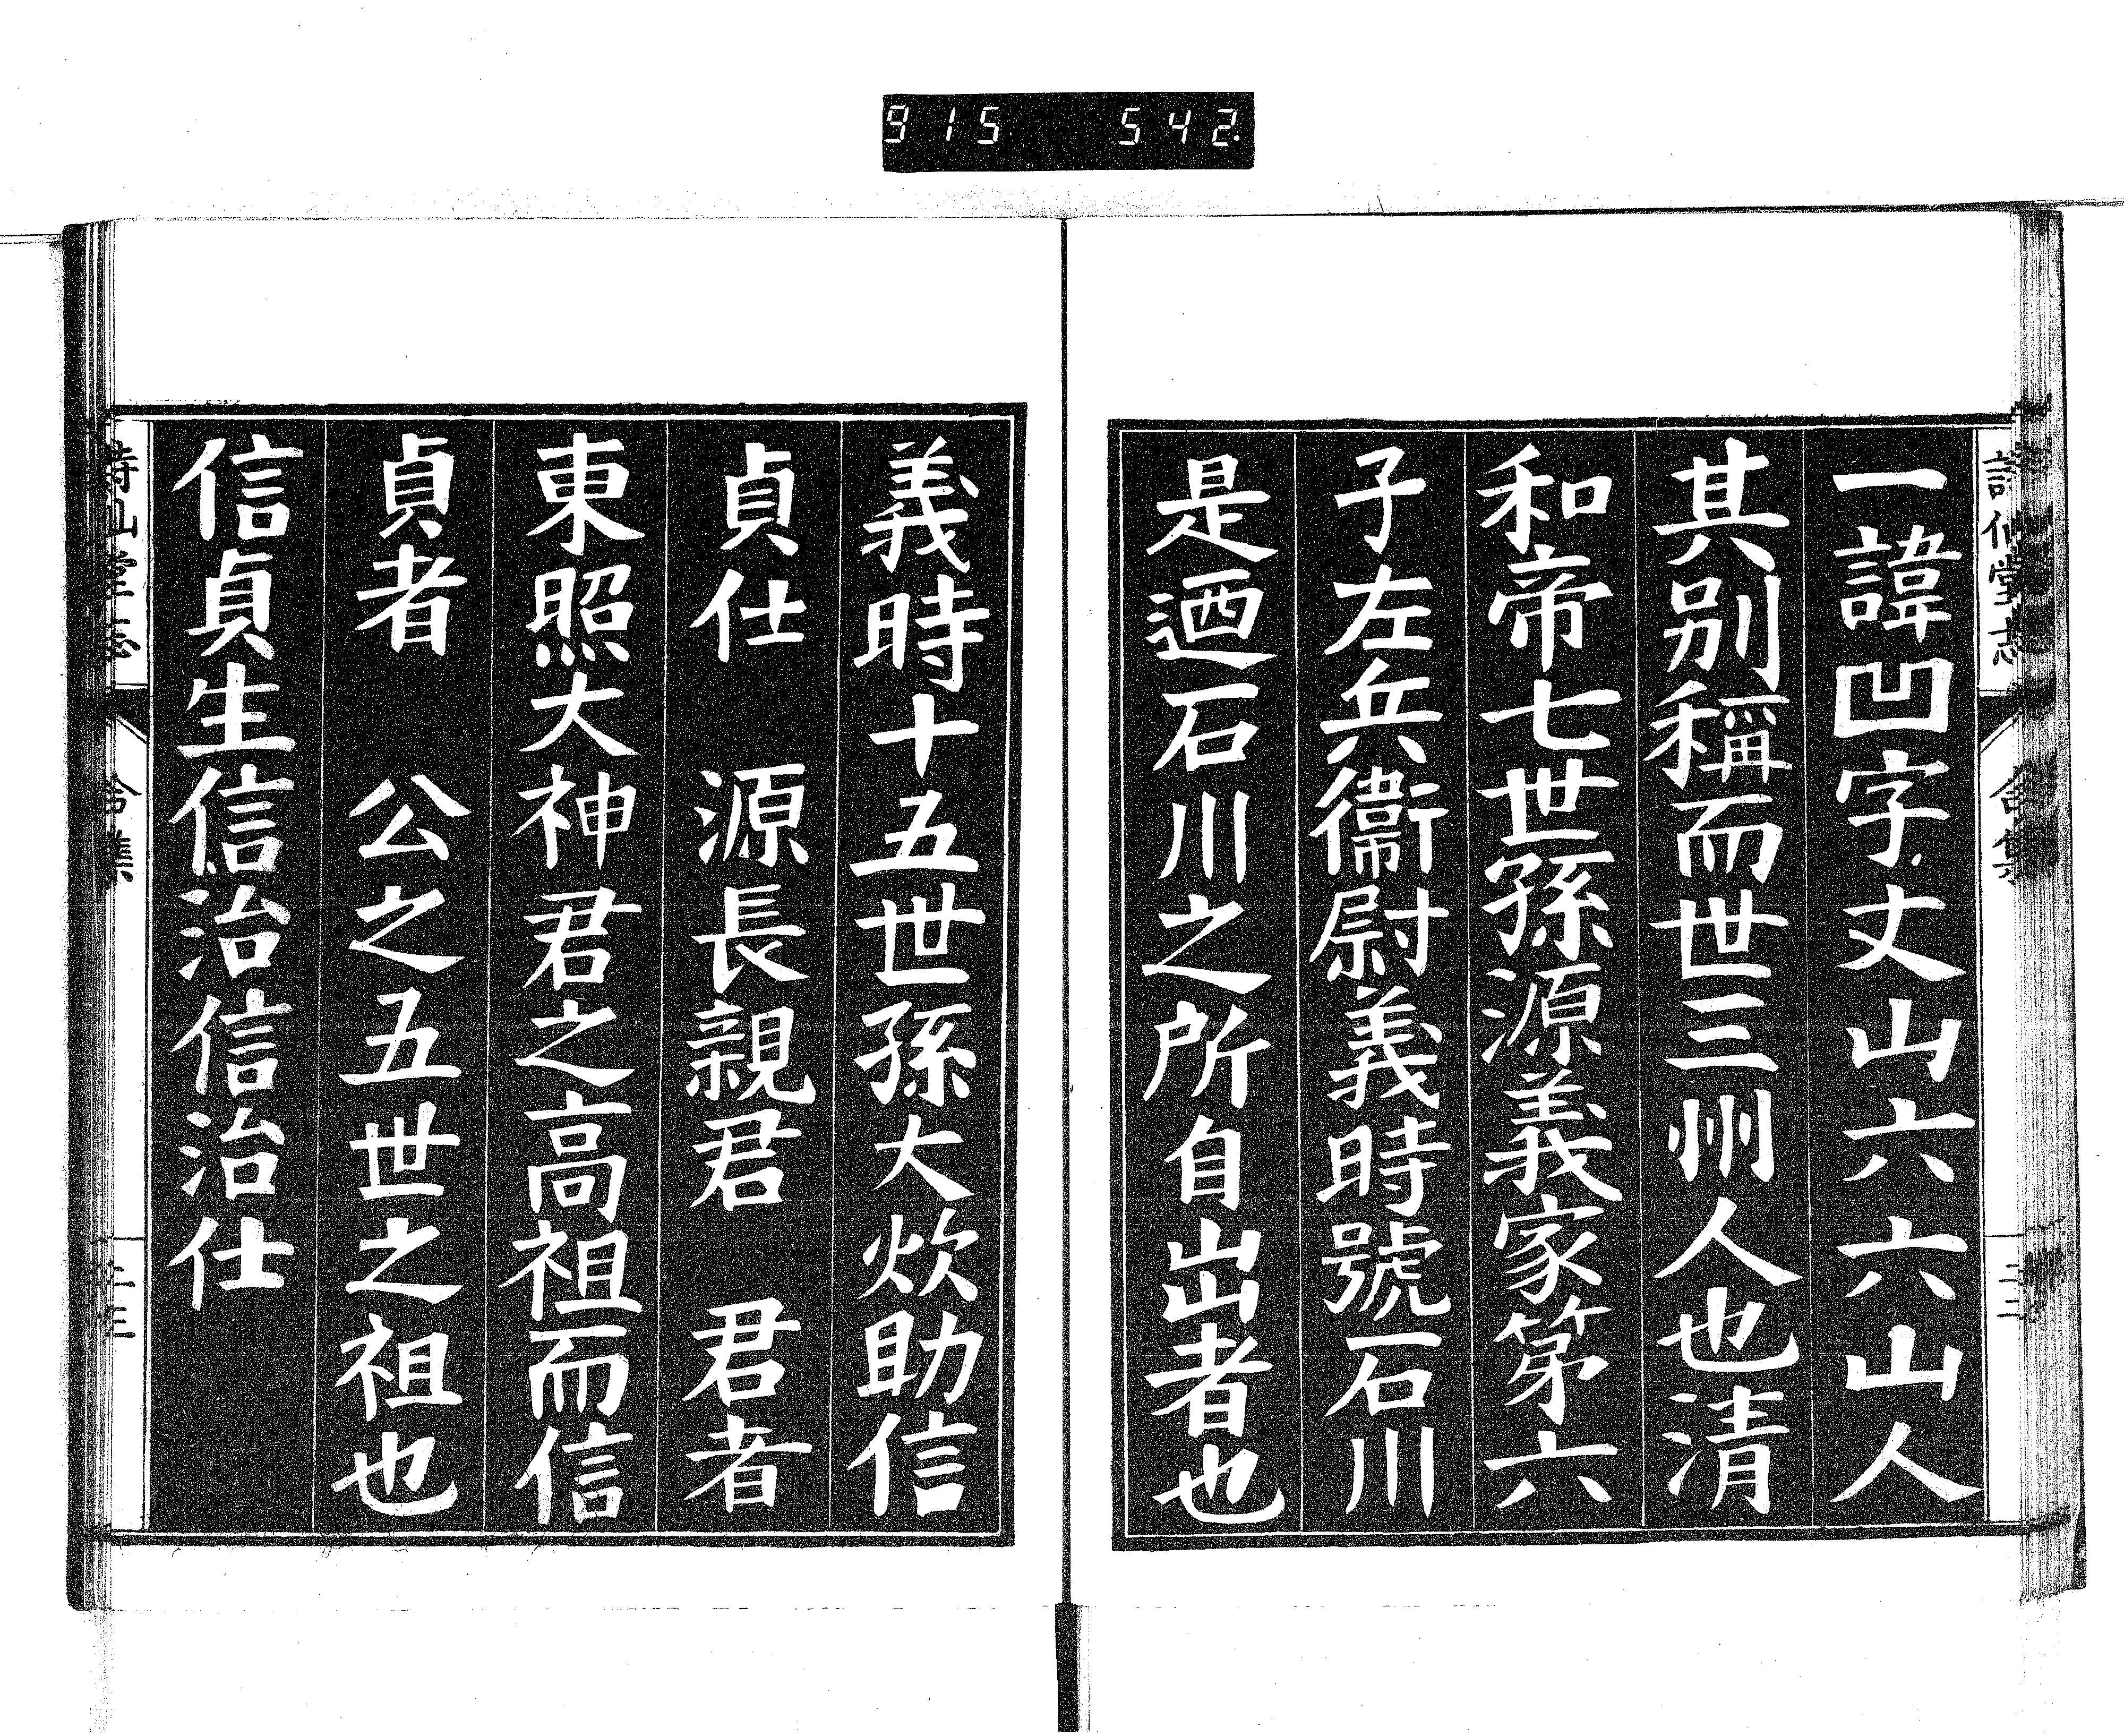 915 542
詩仙堂志
一諱凹字丈山六六山人
其別稱而世三州人也清
和帝七世孫源義家第六
子左兵衞尉義時號石川
是迺石川之所自出者也
義時十五世孫大炊助信
貞仕 源長親君 君者
東照大神君之高祖而信
貞者 公之五世之祖也
信貞生信治信治仕